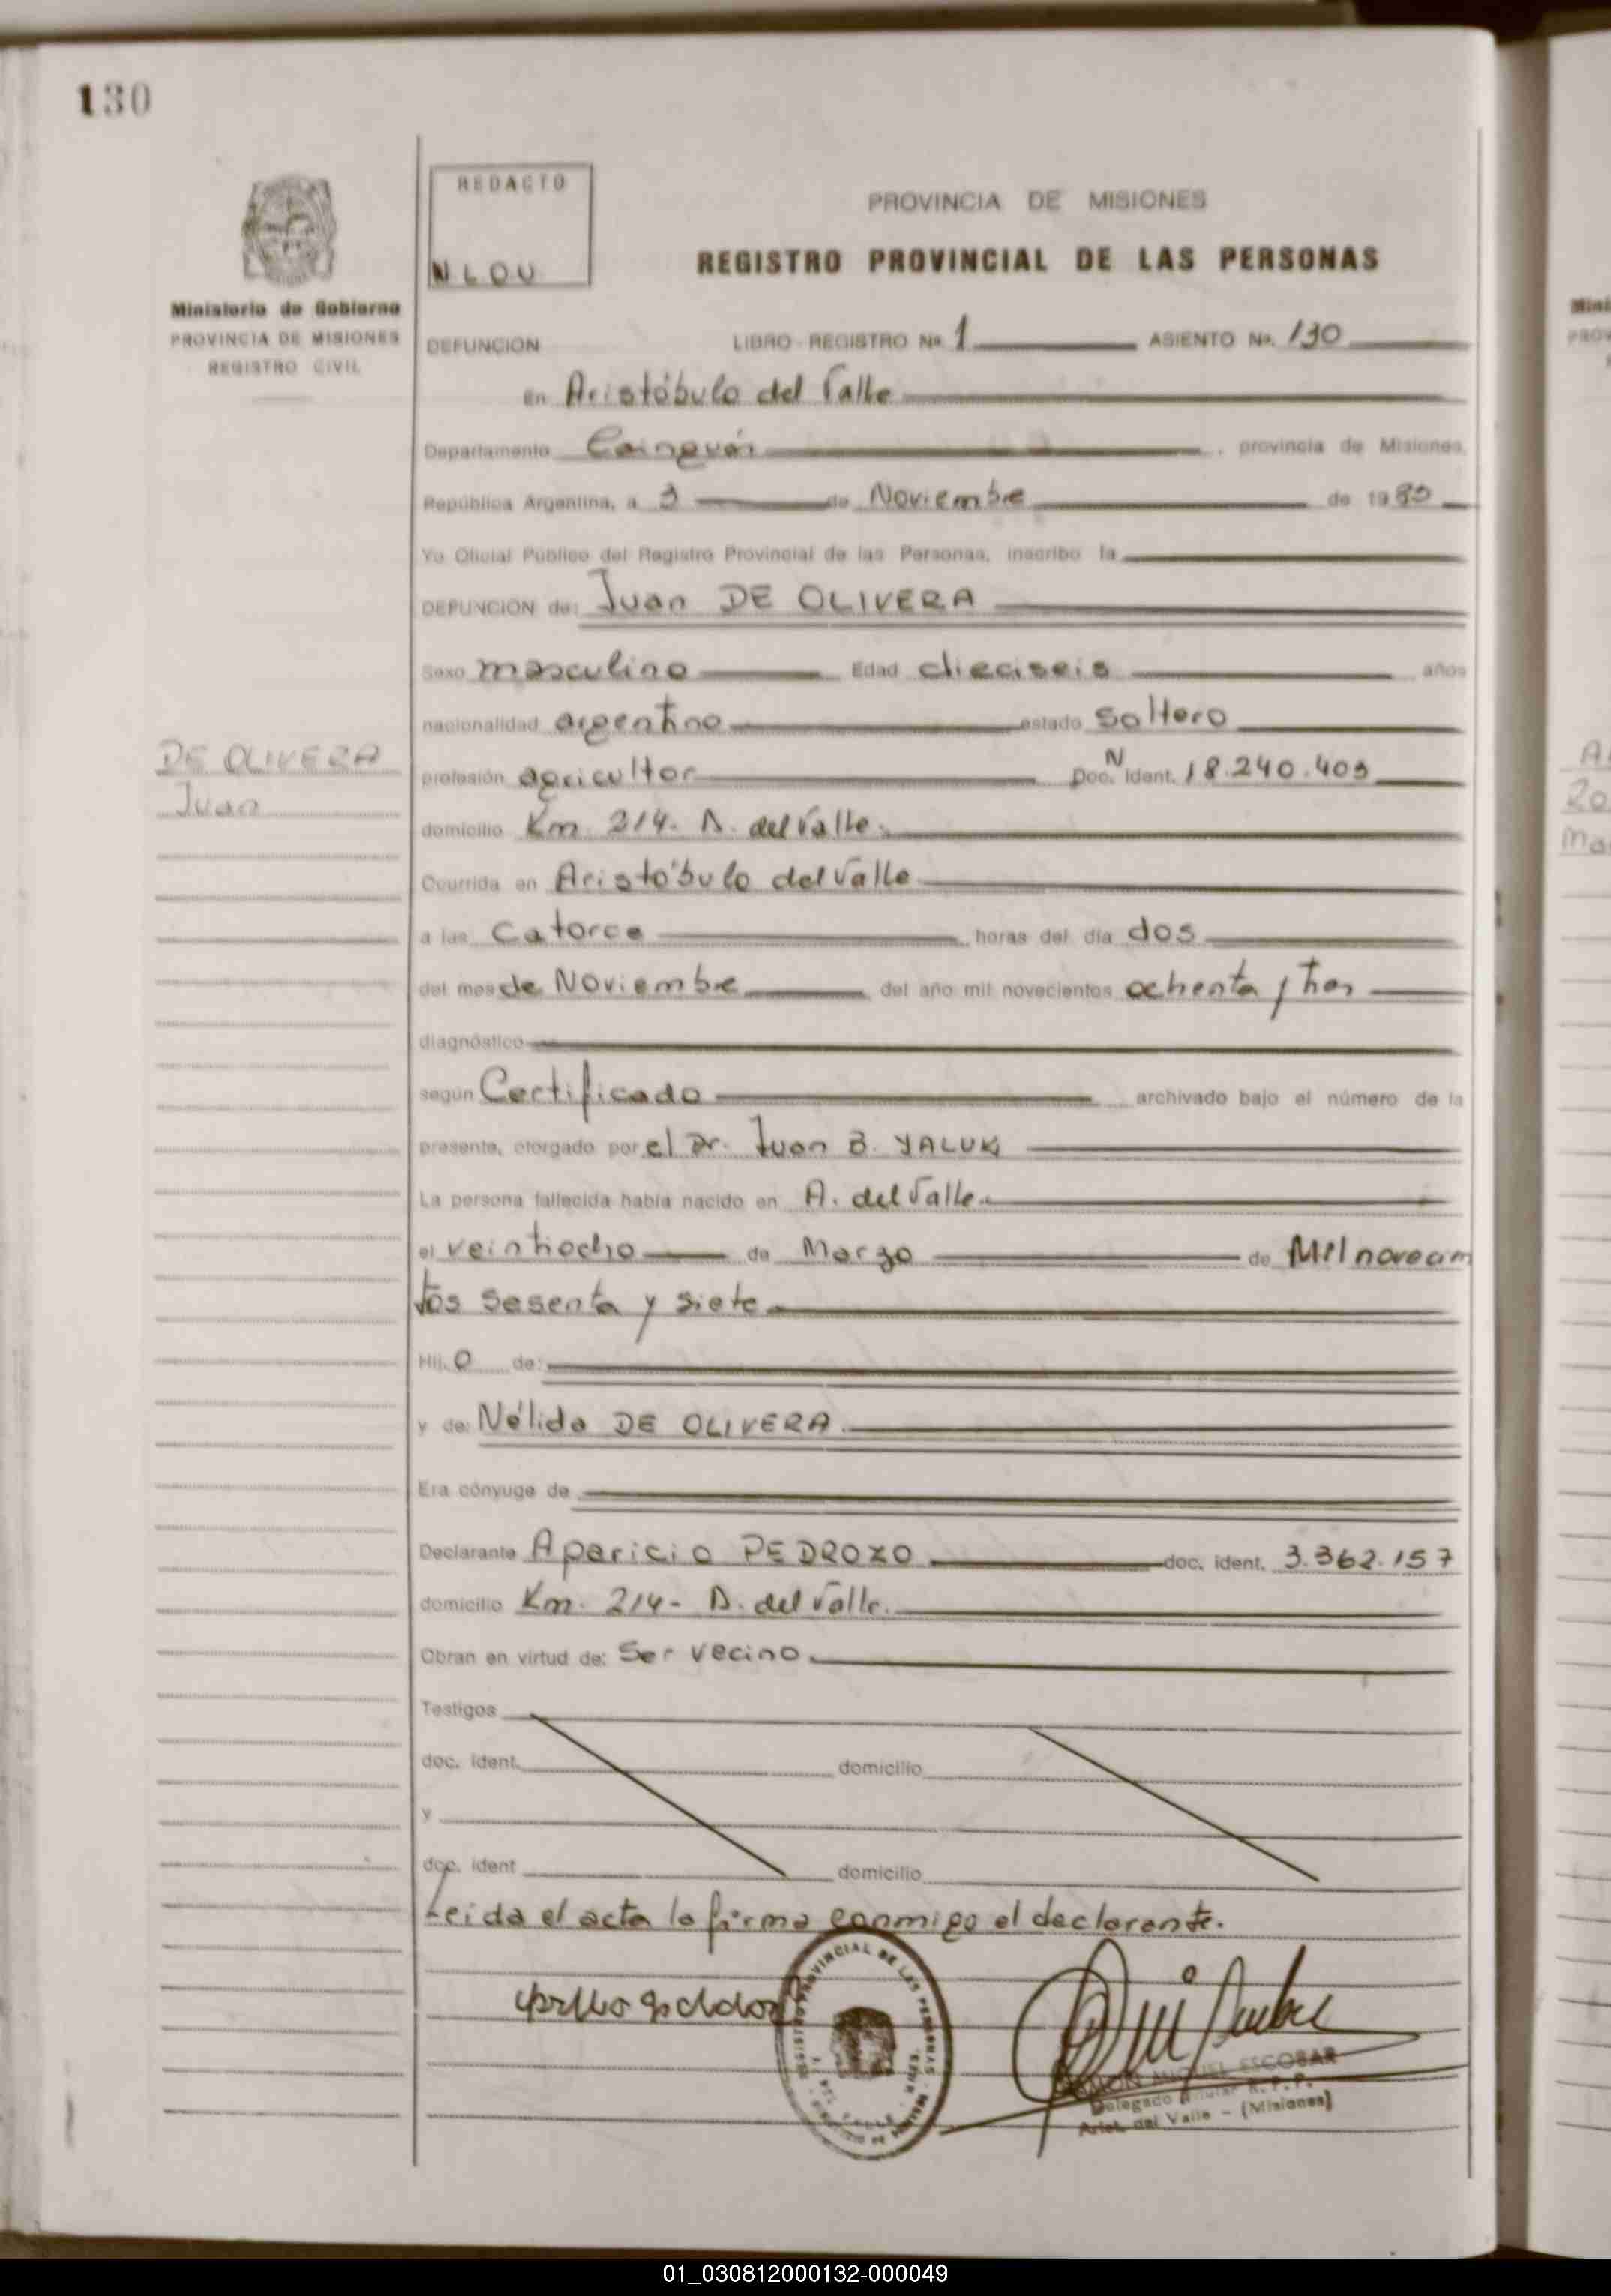 130
REDACTO
N L O U
Ministerio de Gobierno
PROVINCIA DE MISIONES
REGISTRO CIVIL
PROVINCIA DE MISIONES
REGISTRO PROVINCIAL DE LAS PERSONAS
DEFUNCION LIBRO - REGISTRO Nº 1 ASIENTO Nº. 130
En Aristóbulo del Valle
Departamento Cainguás, provincia de Misiones,
República Argentina, a 3 de Noviembre de 1983
Yo Oficial Público del Registro Provincial de las Personas, inscribo la
DEFUNCION de: Juan DE OLIVERA
Sexo masculino Edad dieciseis años
nacionalidad argentino estado soltero
DE OLIVERA
Juan
profesión agricultor Doc. N Ident. 18.240.403
domicilio Km. 214- A. del Valle.
Ocurrida en Aristóbulo del Valle
a las catorce horas del día dos
del mes de Noviembre del año mil novecientos ochenta y tres
diagnóstico
según Certificado archivado bajo el número de la
presente, otorgado por el Dr. Juan B. YALUK
La persona fallecida había nacido en A. del Valle.
el veintiocho de Marzo de Mil novecien
tos sesenta y siete
Hij o de:
y de: Nélida DE OLIVERA.
Era cónyuge de
Declarante Aparicio PEDROZO doc. ident. 3.362.157
domicilio Km. 214- A. del Valle.
Obran en virtud de: Ser vecino.
Testigos
doc. ident. domicilio
y
doc. ident domicilio
Leida el acta la firma conmigo el declarante.
REGISTRO PROVINCIAL DE LAS PERSONAS
MIGUEL ESCOBAR
Delegado Titular R. P. P.
Arist. del Valle - (Misiones)
01_030812000132-000049